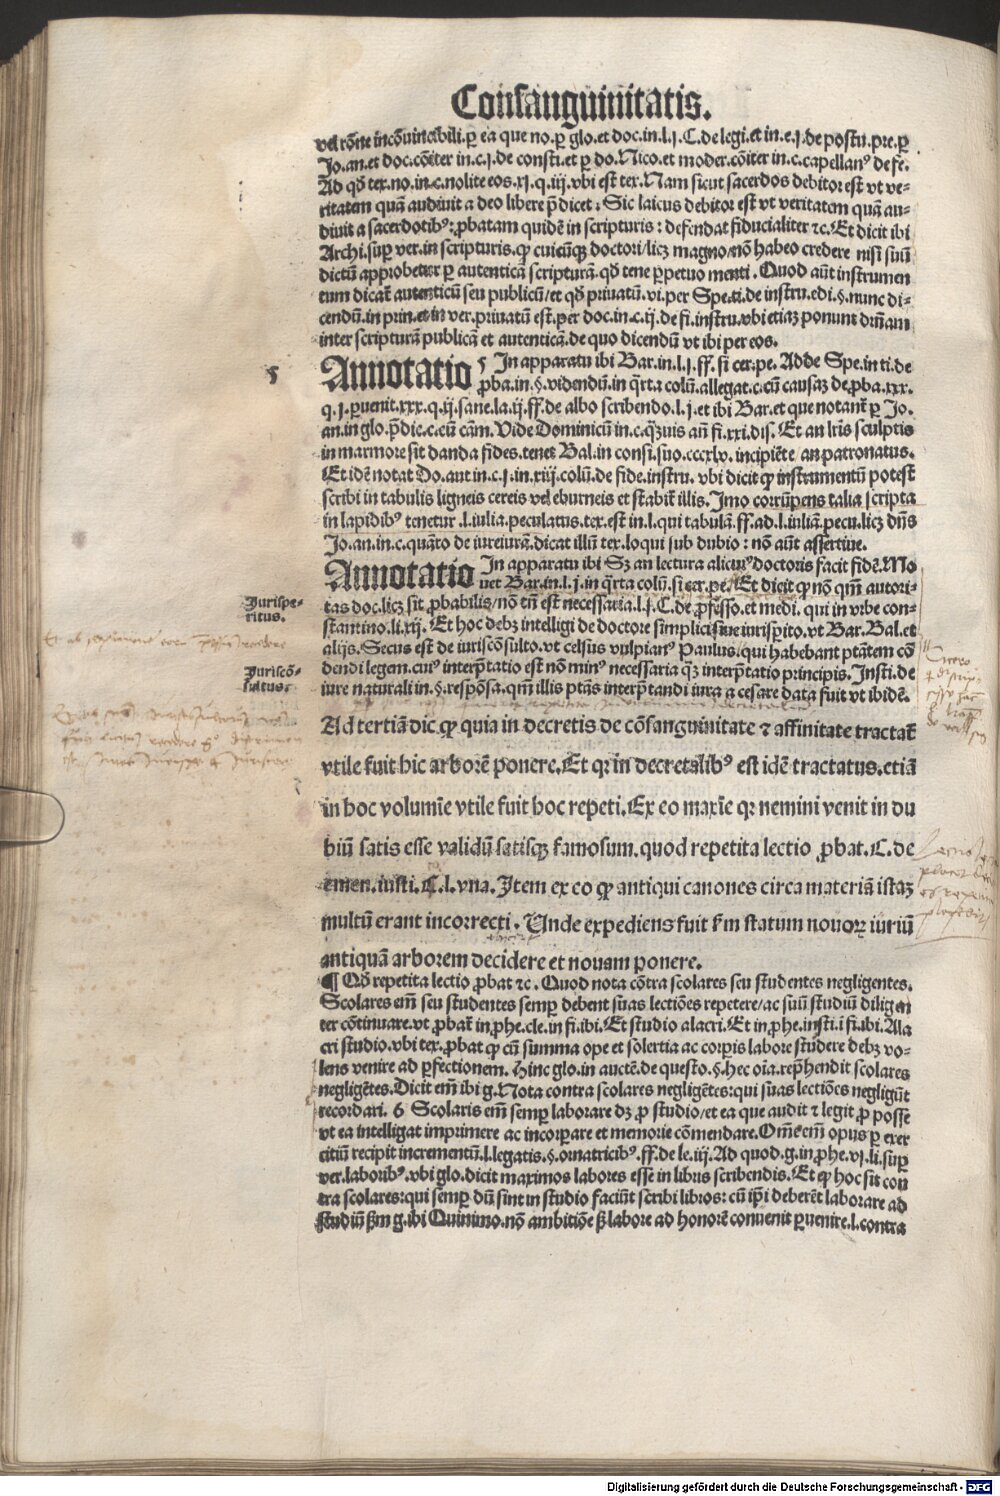 Consanguinitatis.
vel rōne incōuincibili. ꝑ ea que no. ꝑ glo. et doc. in. l. j. C. de legi. et in. e. j. de postu. pre. ꝑ
Jo. an. et doc. cōiter in. c. j. de consti. et ꝑ do. Nico. et moder. cōiter in. c. capellanꝰ de fe.
Ad qđ tex. no. in. c. nolite eos. xj. q. iij. vbi est tex. Nam sicut sacerdos debitor est vt ve-
ritatem quā audiuit a deo libere p̄dicet. Sic laicus debitor est vt veritatem quā au-
diuit a sacerdotibꝰ: ꝓbatam quidē in scripturis: defendat fiducialiter ⁊c. Et dicit ibi
Archi. suꝑ ver. in scripturis. ꝙ cuicūqꝫ doctori/licꝫ magno/nō habeo credere nisi suū
dictū approbetur ꝑ autenticā scripturā. qđ tene ꝑpetuo menti. Quod aūt instrumen
tum dicat̄ autenticū seu publicū/et qđ priuatū. vi. per Spe. ti. de instru. edi. §. nunc di-
cendū. in prin. et in ver. priuatū est. per doc. in. c. ij. de fi. instru. vbi etiaꝫ ponunt dr̄nam
inter scripturā publicā et autenticā. de quo dicendū vt ibi per eos.
5
Annotatio 5 In apparatu ibi Bar. in. l. j. ff. si cer. pe. Adde Spe. in ti. de
ꝓba. in. §. videndū. in q̄rta colū. allegat. c. cū causaꝫ de ꝓba. xxx.
q. j. ꝑuenit. xxx. q. ij. sane. la. ij. ff. de albo scribendo. l. j. et ibi Bar. et que notant̄ ꝑ Jo.
an. in glo. p̄dic. c. cū cām. Vide Dominicū in. c. q̄ꝫuis an̄ fi. xxi. dis. Et an lr̄is sculptis
in marmore sit danda fides. tenet Bal. in consi. suo. cccxlv. incipiēte/an patronatus.
Et idē notat Do. aut in. c. j. in. xiij. colū. de fide. instru. vbi dicit ꝙ instrumentū potest
scribi in tabulis ligneis cereis vel eburneis et stabit̄ illis. Jmo corrūpens talia scripta
in lapidibꝰ tenetur. l. iulia. peculatus. tex. est in. l. qui tabulā. ff. ad. l. iuliā. pecu. licꝫ dn̄s
Jo. an. in. c. quāto de iureiurā. dicat illū tex. loqui sub dubio: nō aūt assertiue.
Annotatio In apparatu ibi Sꝫ an lectura alicuiꝰ doctoris facit fidē. Mo
uet Bar. in. l. j. in q̄rta colū. si cer. pe. Et dicit ꝙ nō qm̄ autori-
Jurispe-
ritus.
tas doc. licꝫ sit ꝓbabilis/nō tn̄ est necessaria. l. j. C. de ꝓfesso. et medi. qui in vrbe con-
stantino. li. xij. Et hoc debꝫ intelligi de doctore simplici siue iurisꝑito. vt Bar. Bal. et
alijs. Secus est de iuriscōsulto. vt celsus vulpianꝰ Paulus/qui habebant ptātem cō
Juriscō-
sultus.
dendi legem. cuiꝰ interp̄tatio est nō minꝰ necessaria q̄ꝫ interp̄tatio principis. Insti. de
iure naturali in. §. respōsa. qm̄ illis ptās interp̄tandi iura a cesare data fuit vt ibidē.
Ad tertiā dic ꝙ quia in decretis de cōsanguinitate ⁊ affinitate tractat̄
vtile fuit hic arborē ponere. Et qꝛ in decretalibꝰ est idē tractatus. etiā
in hoc volumīe vtile fuit hoc repeti. Ex eo maxīe qꝛ nemini venit in du
biū satis esse validū satisqꝫ famosum. quod repetita lectio ꝓbat. C. de
emen. iusti. C. l. vna. Item ex eo ꝙ antiqui canones circa materiā istaꝫ
multū erant incorrecti. Unde expediens fuit s̄m statum nouoꝝ iuriū
antiquā arborem decidere et nouam ponere.
¶ Qđ repetita lectio ꝓbat ⁊c. Quod nota cōtra scolares seu studentes negligentes.
Scolares em̄ seu studentes semꝑ debent suas lectiōes repetere/ac suū studiū diligen
ter cōtinuare. vt ꝓbat̄ in ꝓhe. cle. in fi. ibi. Et studio alacri. Et in ꝓhe. insti. i fi. ibi. Ala
cri studio. vbi tex. ꝓbat ꝙ cū summa ope et solertia ac corꝑis labore studere debꝫ vo-
lens venire ad ꝑfectionem. Hinc glo. in auctē. de questo. §. hec oīa. rep̄hendit scolares
negligētes. Dicit em̄ ibi g. Nota contra scolares negligētes: qui suas lectiōes negligūt
recordari. 6 Scolaris em̄ semꝑ laborare dꝫ ꝓ studio/et ea que audit ⁊ legit ꝓ posse
vt ea intelligat imprimere ac incorꝑare et memorie cōmendare. Om̄e em̄ opus ꝑ exer
citiū recipit incrementū. l. legatis. §. ornatricibꝰ. ff. de le. iij. Ad quod. g. in ꝓhe. vj. li. suꝑ
ver. laboribꝰ. vbi glo. dicit maximos labores esse in libris scribendis. Et ꝙ hoc sit con
tra scolares: qui semꝑ dū sint in studio faciūt scribi libros: cū ip̄i deberēt laborare ad
studiū s̄m g. ibi Quinimo. nō ambitiōe sꝫ labore ad honorē conuenit ꝑuenire. l. contra
Digitalisierung gefördert durch die Deutsche Forschungsgemeinschaft - DFG